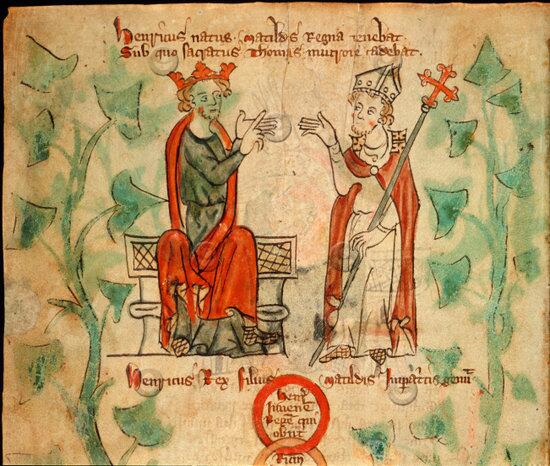 Henricus natus Matildis Regna tenebat.
Sub quo sacratus Thomas mucrone cadebat.
Henricus Rex filius Matildis Imp̄atͥcis
Henͥ
iuuenē
Regē qui
obiit
Ricar̄